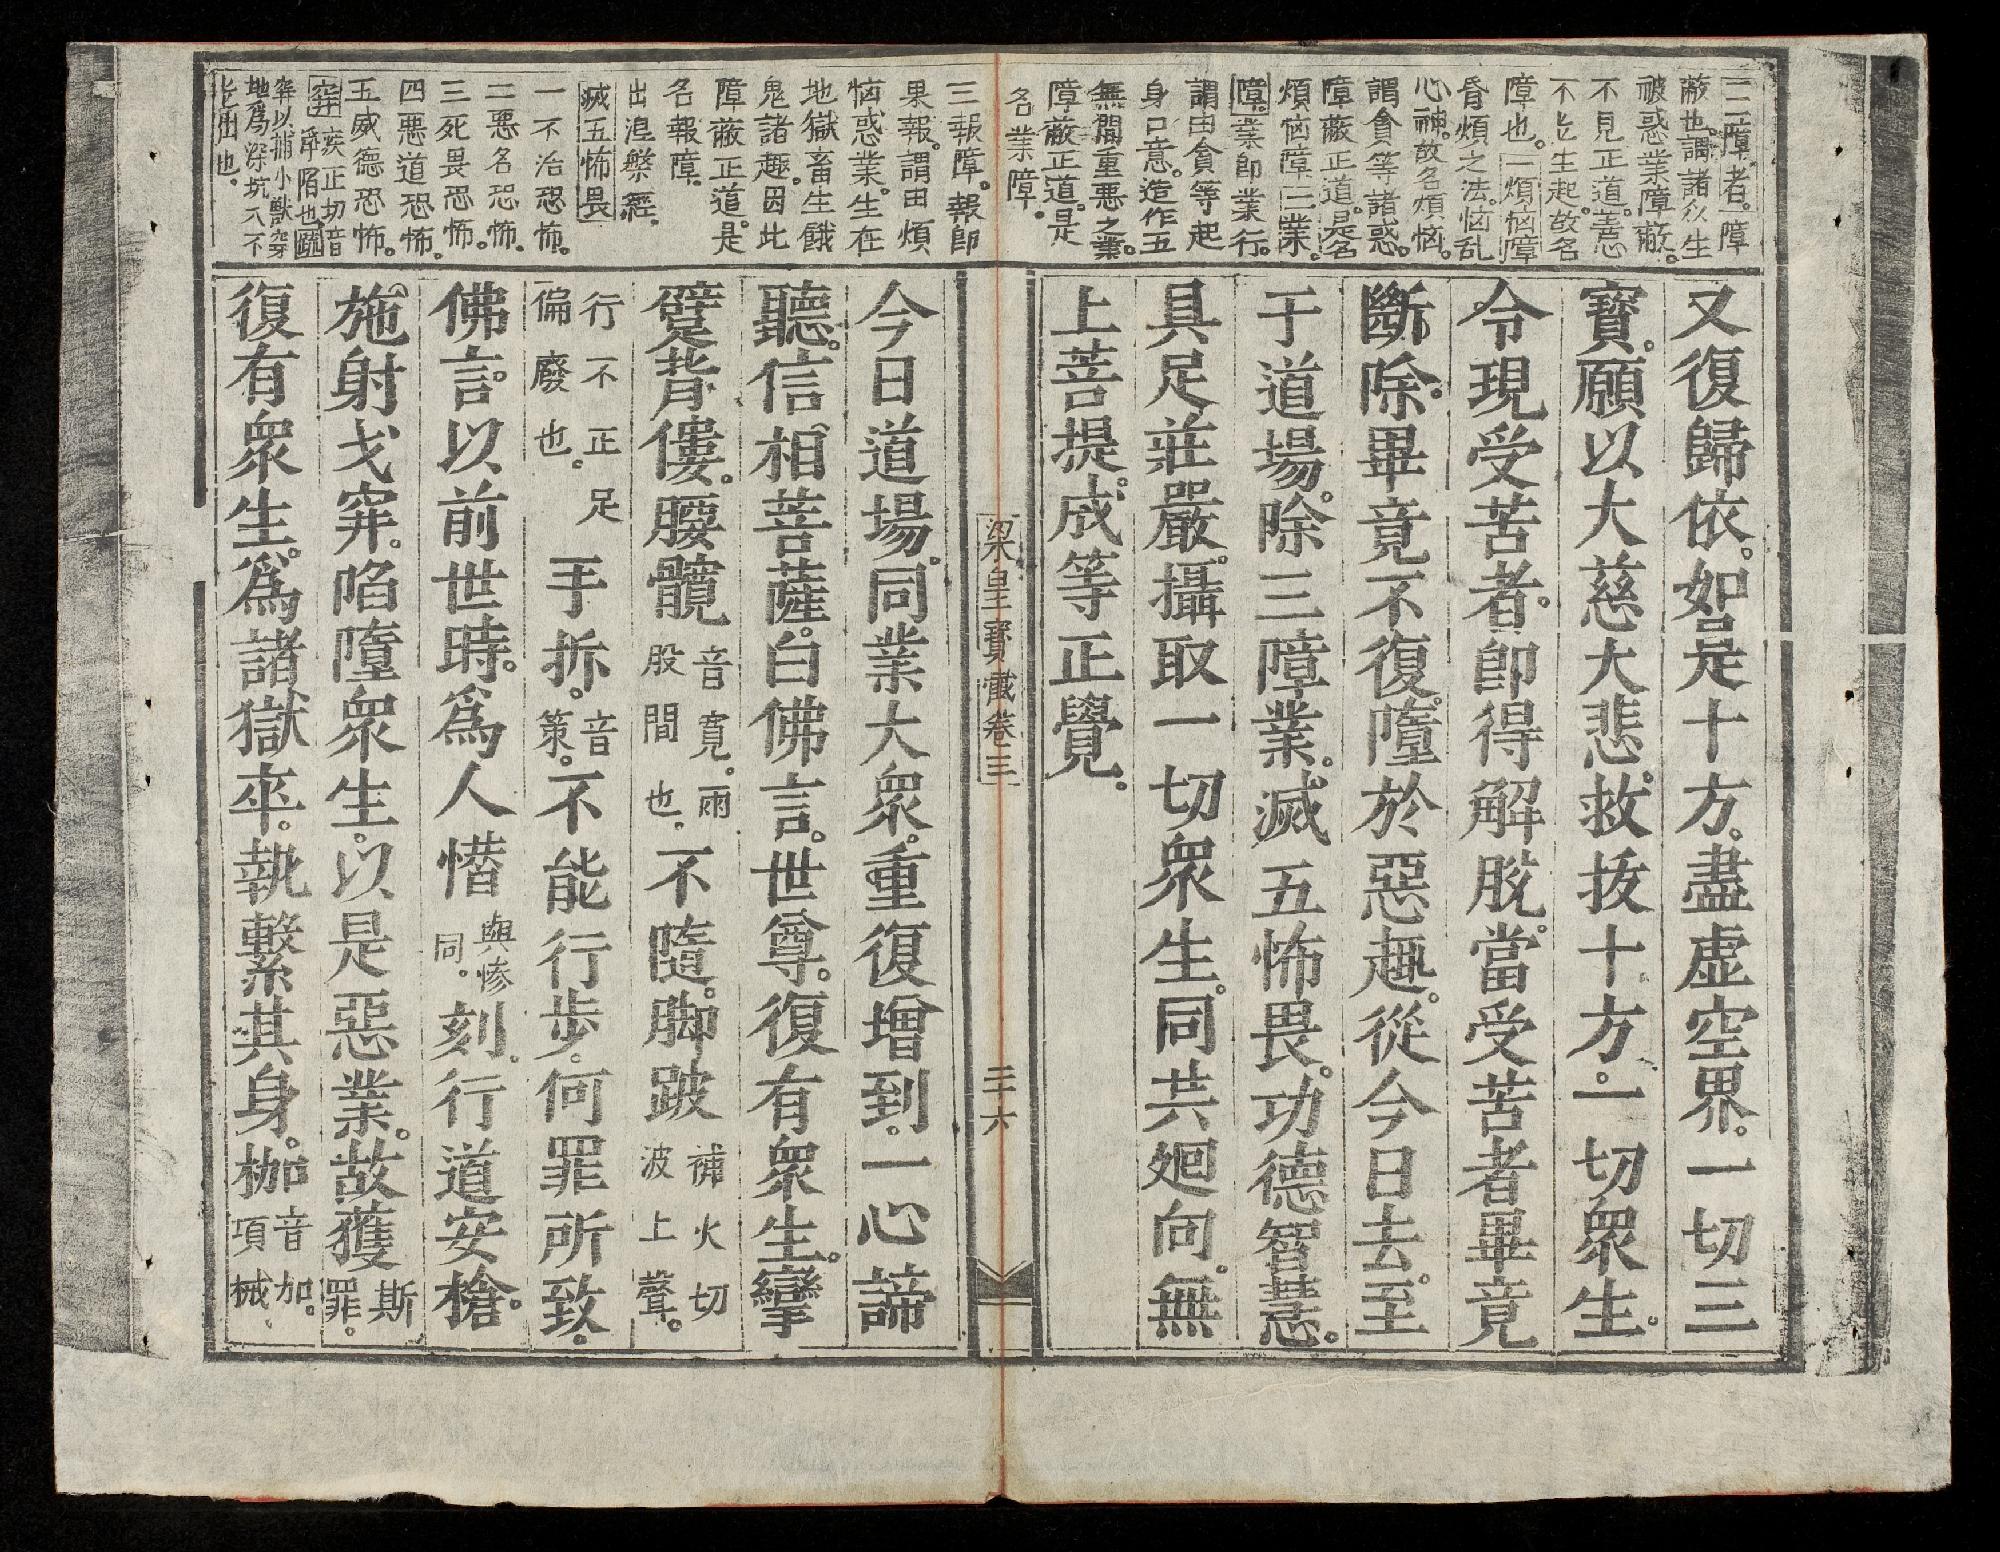 三障者。障
蔽也。謂諸众生
被惑業障蔽。
不見正道。善心
不㠯生起。故名
障也。一煩惱障
昏煩之法。惱乱
心神。故名煩惱。
謂貪等諸惑。
障蔽正道。是名
煩惱障。二業
障。業即業行。
謂由貪等起
身口意。造作五
無間重惡之業。
障蔽正道。是
名業障。
三報障。報即
果報。謂由煩
惱惑業。生在
地獄畜生餓
鬼諸趣。因此
障蔽正道。是
名報障。
出涅槃經。
滅五怖畏
一不治恐怖。
二惡名恐怖。
三死畏恐怖。
四惡道恐怖。
五威德恐怖。
穽 疾正切音
淨陷也
穽以捕小獸穿
地為深坑入不
出也。
又復歸依。如是十方。盡虛空界。一切三
寶。願以大慈大悲。救拔十方。一切眾生。
令現受苦者。即得解脫。當受苦者畢竟
斷除。畢竟不復。墮於惡趣。從今日去。至
于道場。除三障業。滅五怖畏。功德智慧。
具足莊嚴。攝取一切眾生。同共廻向。無
上菩提。成等正覺。
梁皇寶懺卷三
二十六
今日道場。同業大衆。重復增到。一心諦
聽。信相菩薩。白佛言。世尊。復有衆生。攣
躄背僂。腰髖音寬。兩股間也。不隨。脚跛補火切波上聲。
行不正足偏廢也。手拆。音策。不能行步。何罪所致。
佛言。以前世時。為人憯與慘同。刻。行道安槍。
施射戈穽。陷墮衆生。以是惡業。故獲斯罪。
復有衆生。為諸獄卒。執繫其身。枷音加。項械、